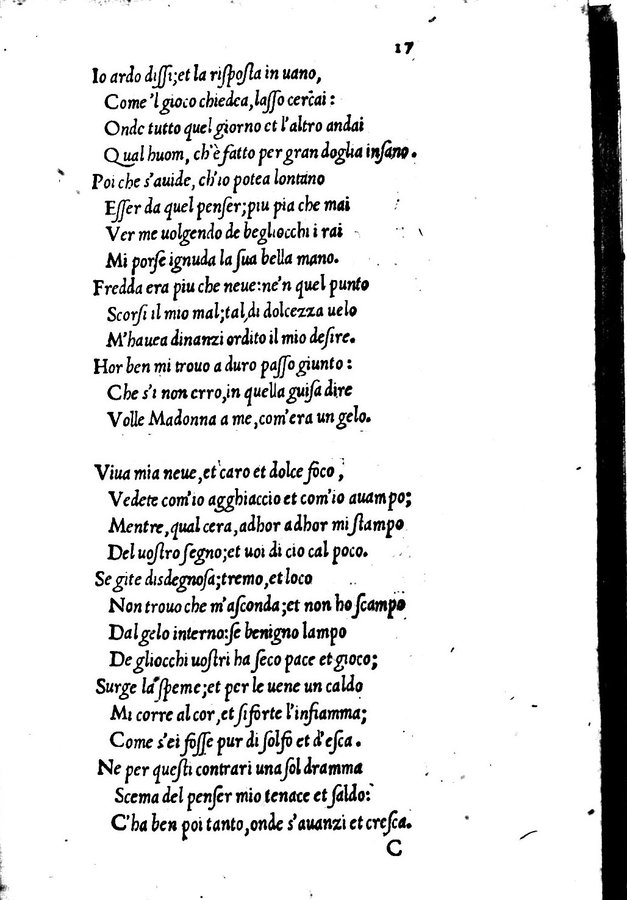 17
Io ardo dissi;et la risposta in uano,
Come 'l gioco chiedea, lasso cercai:
Onde tutto quel giorno et l'altro andai
Qual huom, ch'è fatto per gran doglia insano.
Poi che s'auide, ch'io potea lontano
Esser da quel penser;piu pia che mai
Ver me uolgendo de begliocchi i rai
Mi porse ignuda la sua bella mano.
Fredda era piu che neue:ne'n quel punto
Scorsi il mio mal;tal di dolcezza uelo
M'hauea dinanzi ordito il mio desire.
Hor ben mi trouo a duro passo giunto:
Che s'i non erro,in quella guisa dire
Volle Madonna a me,com'era un gelo.

Viua mia neue,et caro et dolce foco,
Vedete com'io agghiaccio et com'io auampo;
Mentre,qual cera,adhor adhor mi stampo
Del uostro segno;et uoi di cio cal poco.
Se gite disdegnosa;tremo,et loco
Non trouo che m'asconda;et non ho scampo
Dal gelo interno:se benigno lampo
De gliocchi uostri ha seco pace et gioco;
Surge la speme;et per le uene un caldo
Mi corre al cor,et si forte l'infiamma;
Come s'ei fosse pur di solfo et d'esca.
Ne per questi contrari una sol dramma
Scema del penser mio tenace et saldo:
C'ha ben poi tanto,onde s'auanzi et cresca.
C